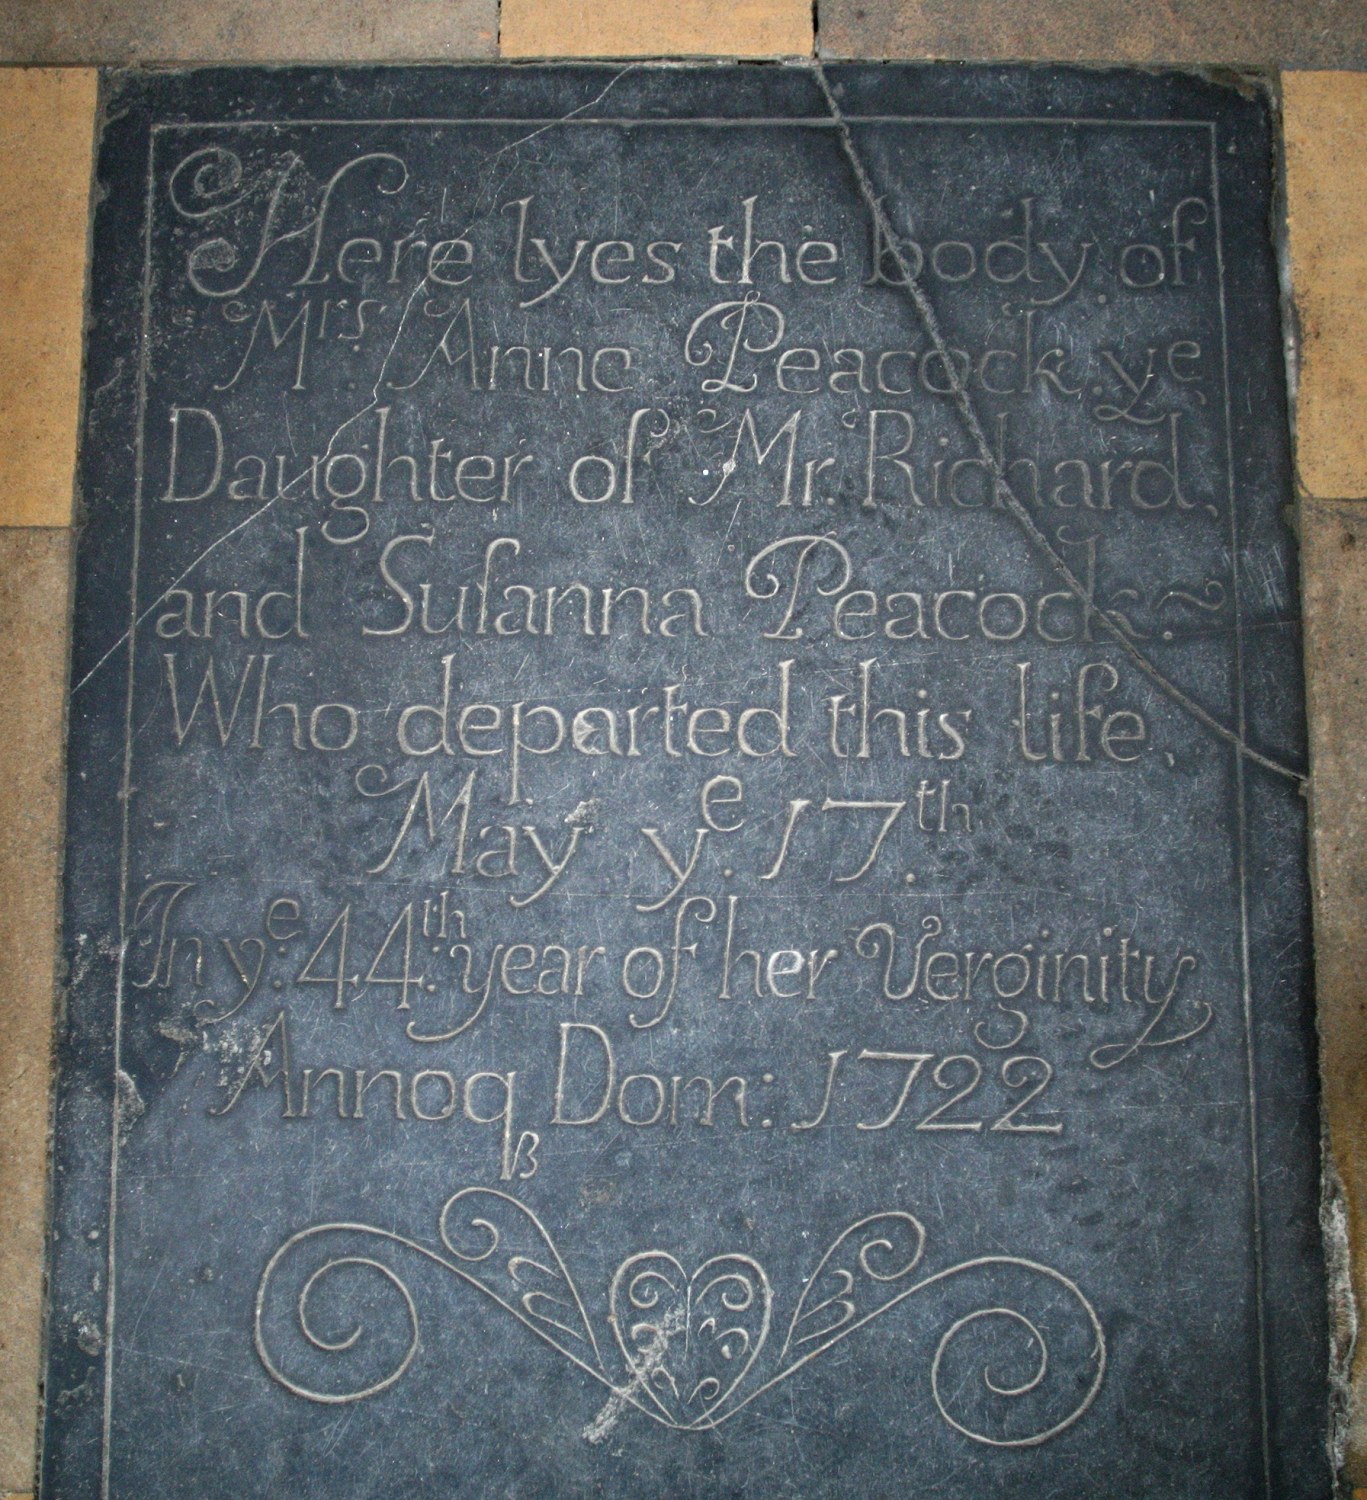 Here lyes the body of
Mrs. Anne Peacock. ye
Daughter of Mr. Richard,
and Suſanna Peacock. ~
Who departed this life,
May ye. 17th.
In ye. 44th. year of her Verginity
Annoqβ Dom: 1722